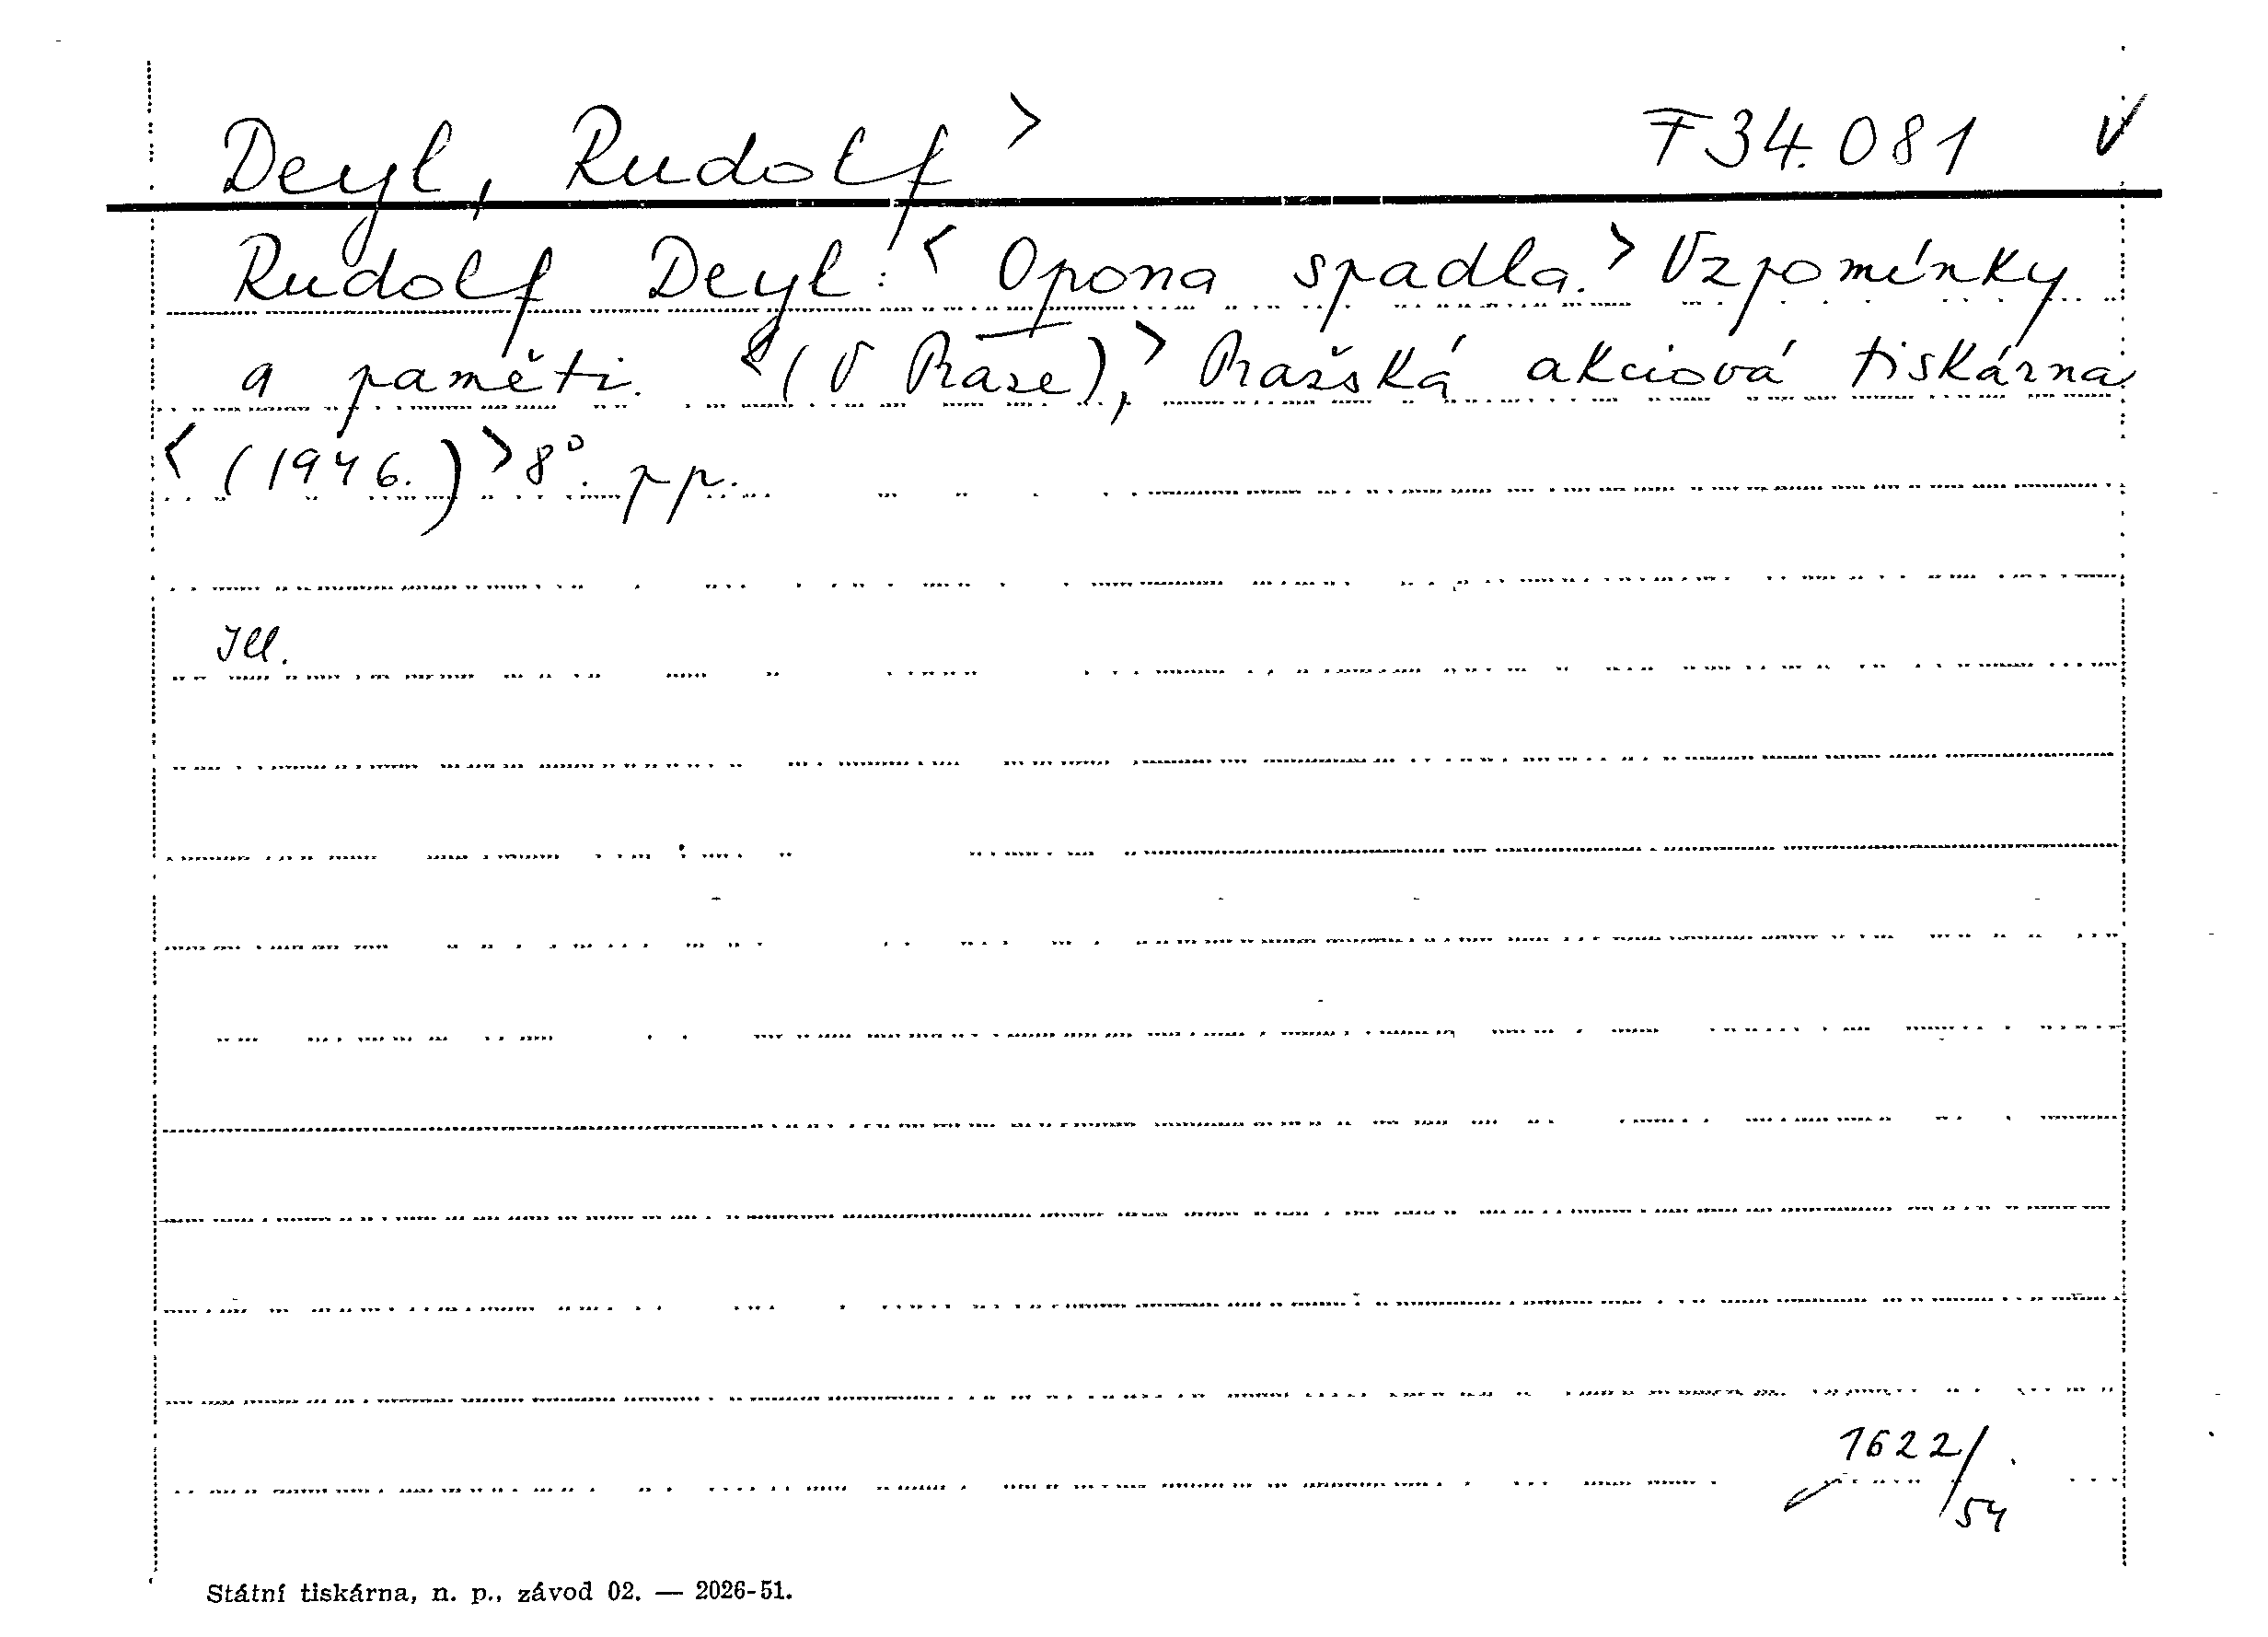 Deyl, Rudolf > F 34.081 V
Rudolf Deyl: < Opona spadla. > Vzpomínky
a paměti. < (V Praze), > Pražská akciová tiskárna
< (1946.) > 8°. pp.
Ill.
1622/
54
Státní tiskárna, n. p., závod 02. — 2026-51.